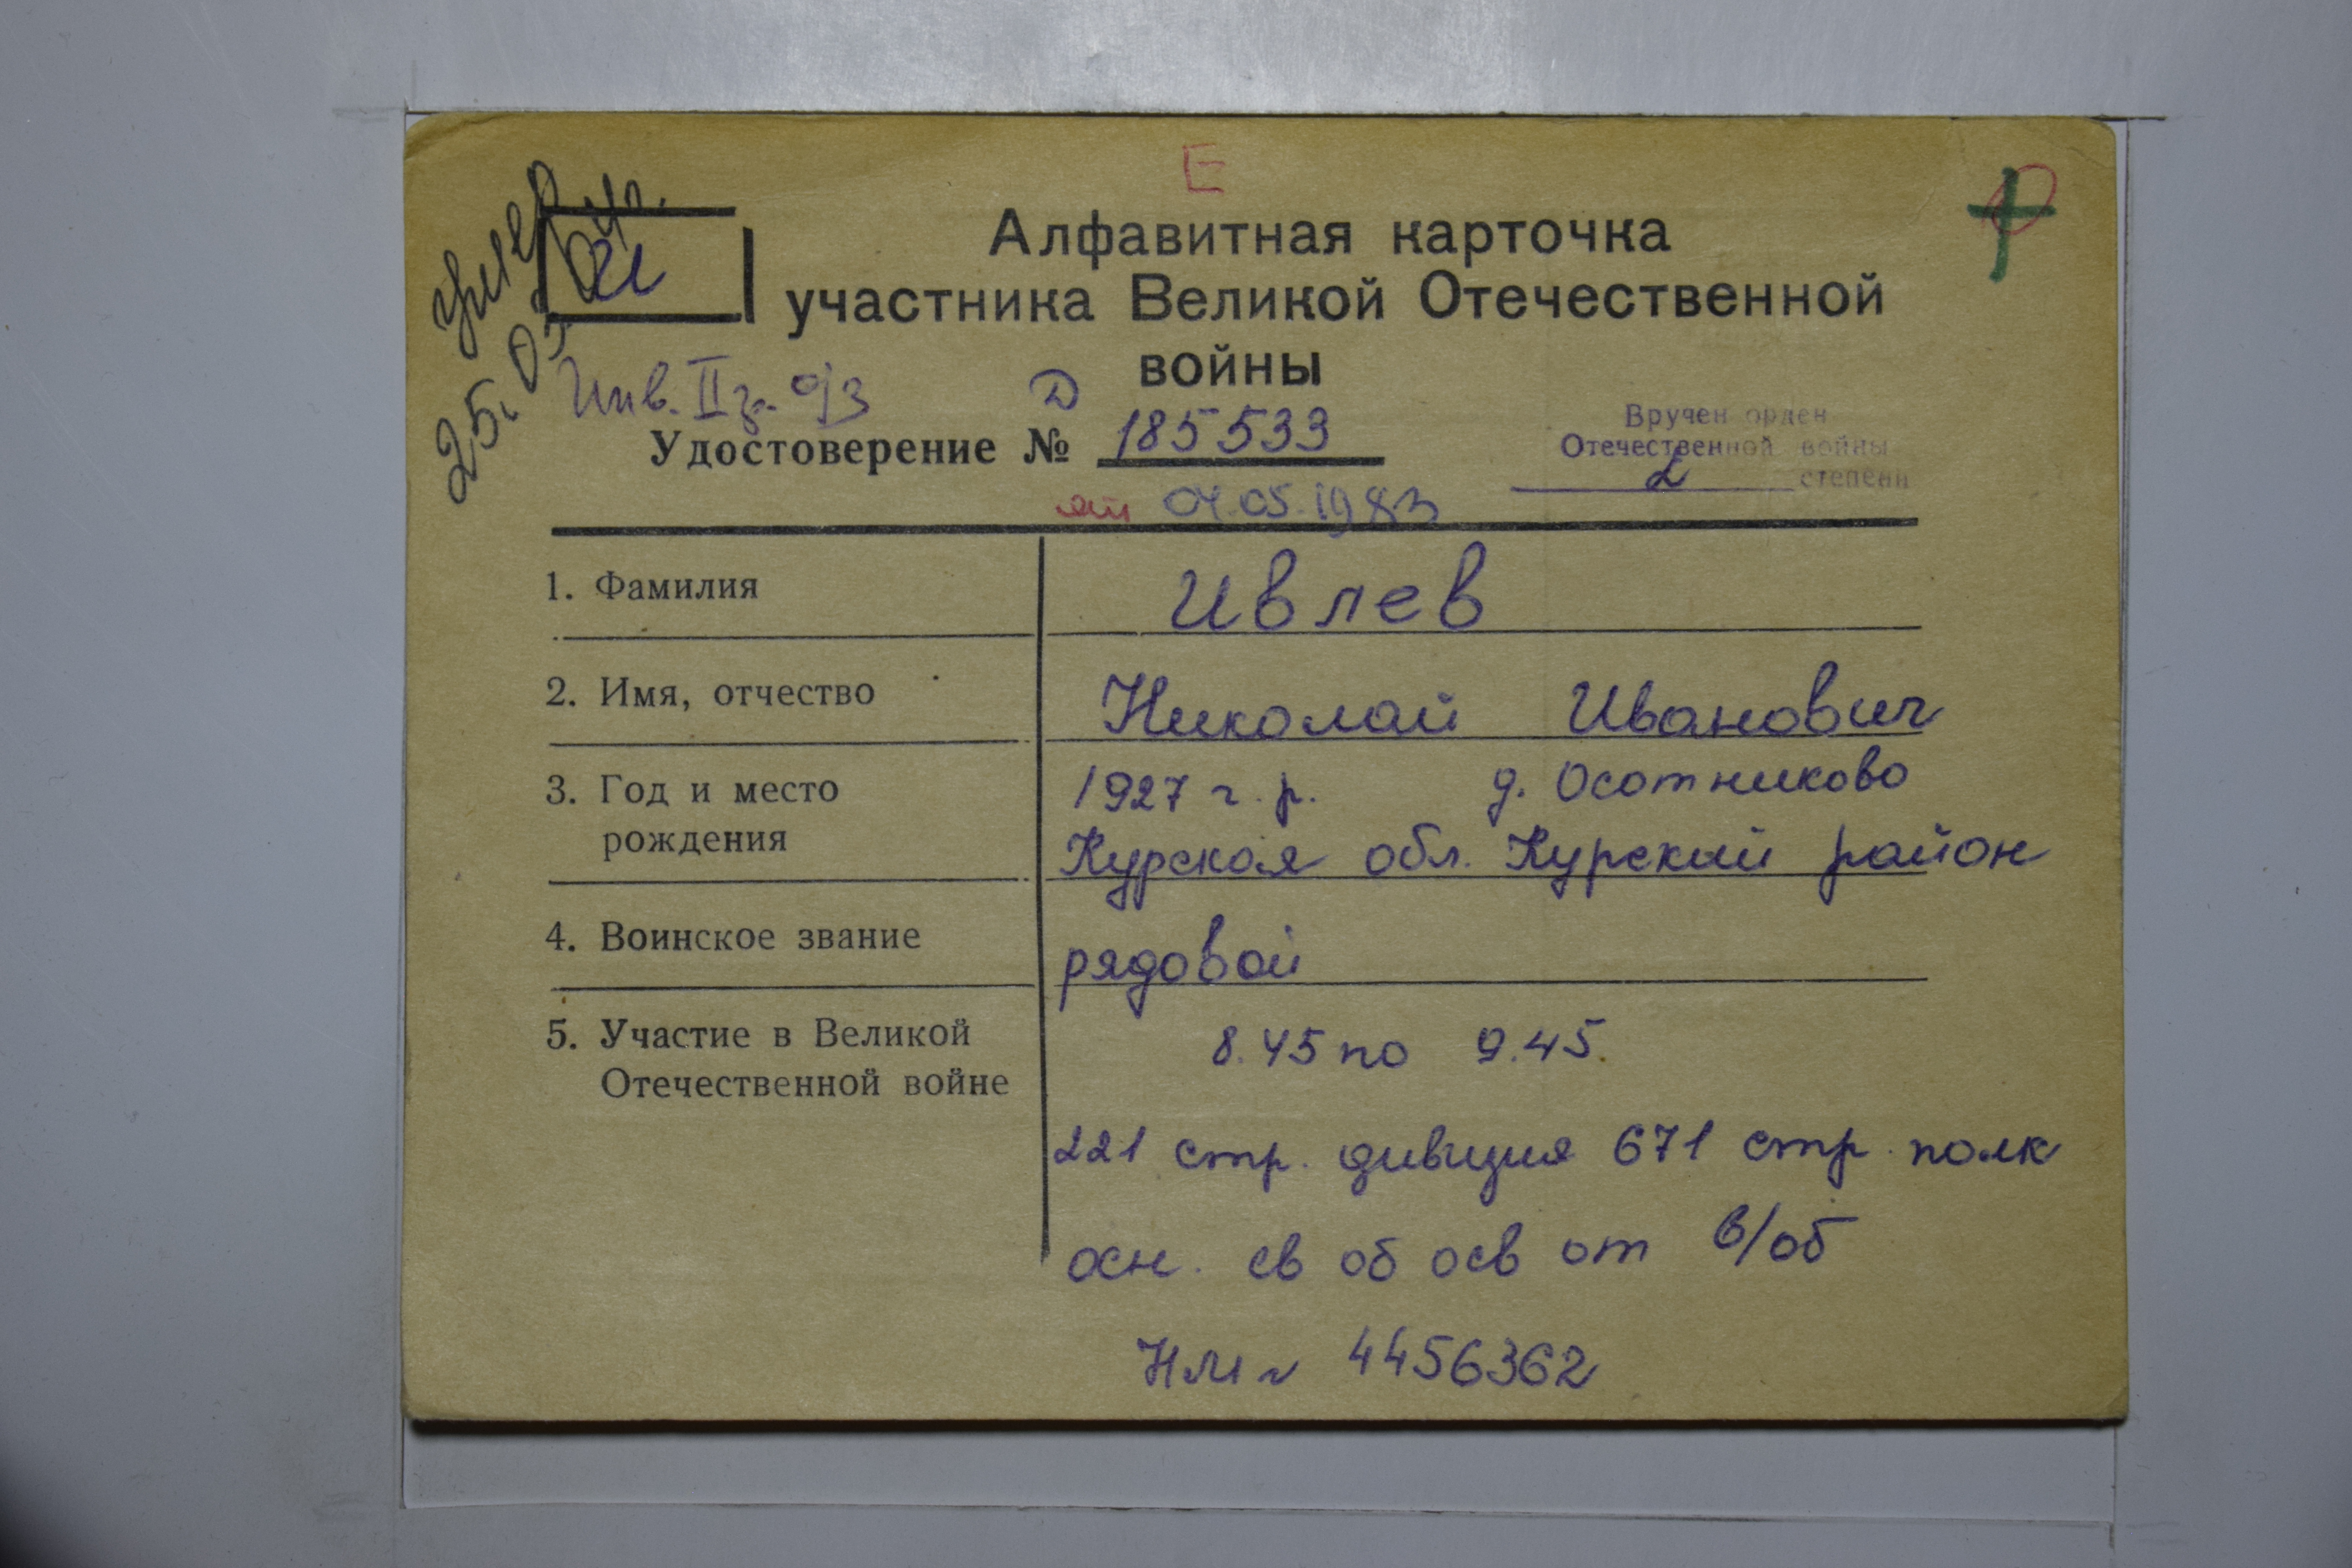 Е
Алфавитная карточка
участника Великой Отечественной
войны
умер
25.05
И
Инв. II гр. о/з
Д
Удостоверение № 185533
от 04.05.1983
Вручен орден
Отечественной войны
2 степени
1. Фамилия
Ивлев
2. Имя, отчество
Николай Иванович
3. Год и место
рождения
1927 г.р. д. Осотниково
Курская обл. Курский район
4. Воинское звание
рядовой
5. Участие в Великой
Отечественной войне
8.45 по 9.45.
221 стр. дивизия 671 стр. полк
осн. св об осв от в/об
НМ 4456362